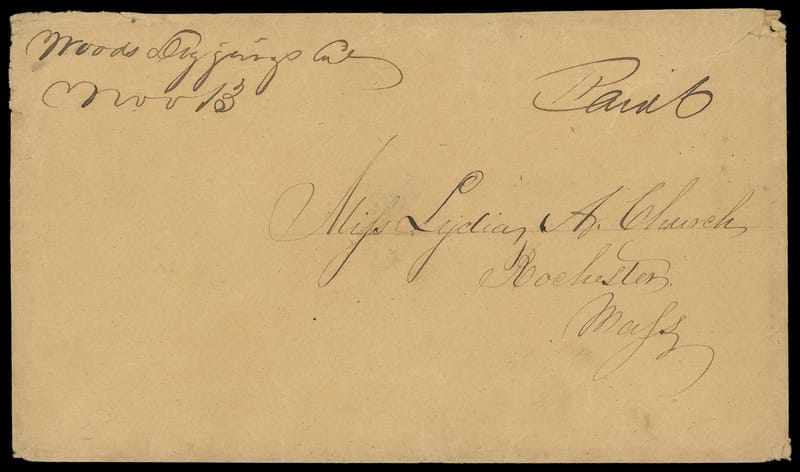 Woods Diggings Cal
Nov 13
Paid 6
Miss Lydia A. Church
Rochester
Mass